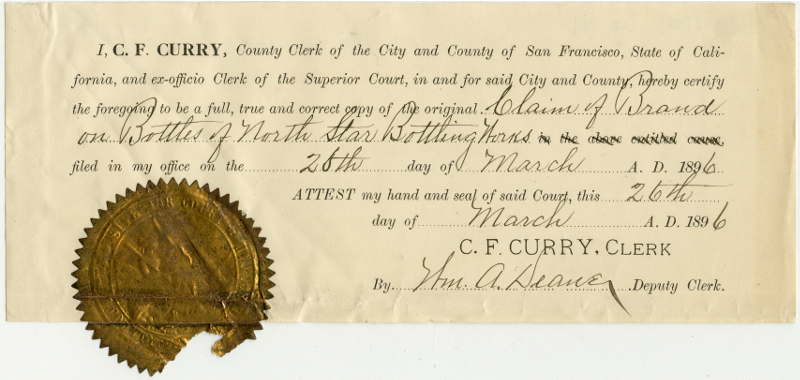 I, C. F. CURRY, County Clerk of the City and County of San Francisco, State of Cali-
fornia, and ex-officio Clerk of the Superior Court, in and for said City and County, hereby certify
the foregoing to be a full, true and correct copy of the original Claim of Brand
on Bottles of North Star Bottling Works in the above entitled cause,
filed in my office on the 26th day of March A. D. 1896
ATTEST my hand and seal of said Court, this 26th
day of March A. D. 1896
C. F. CURRY, CLERK
By Wm. A. Deane, Deputy Clerk.